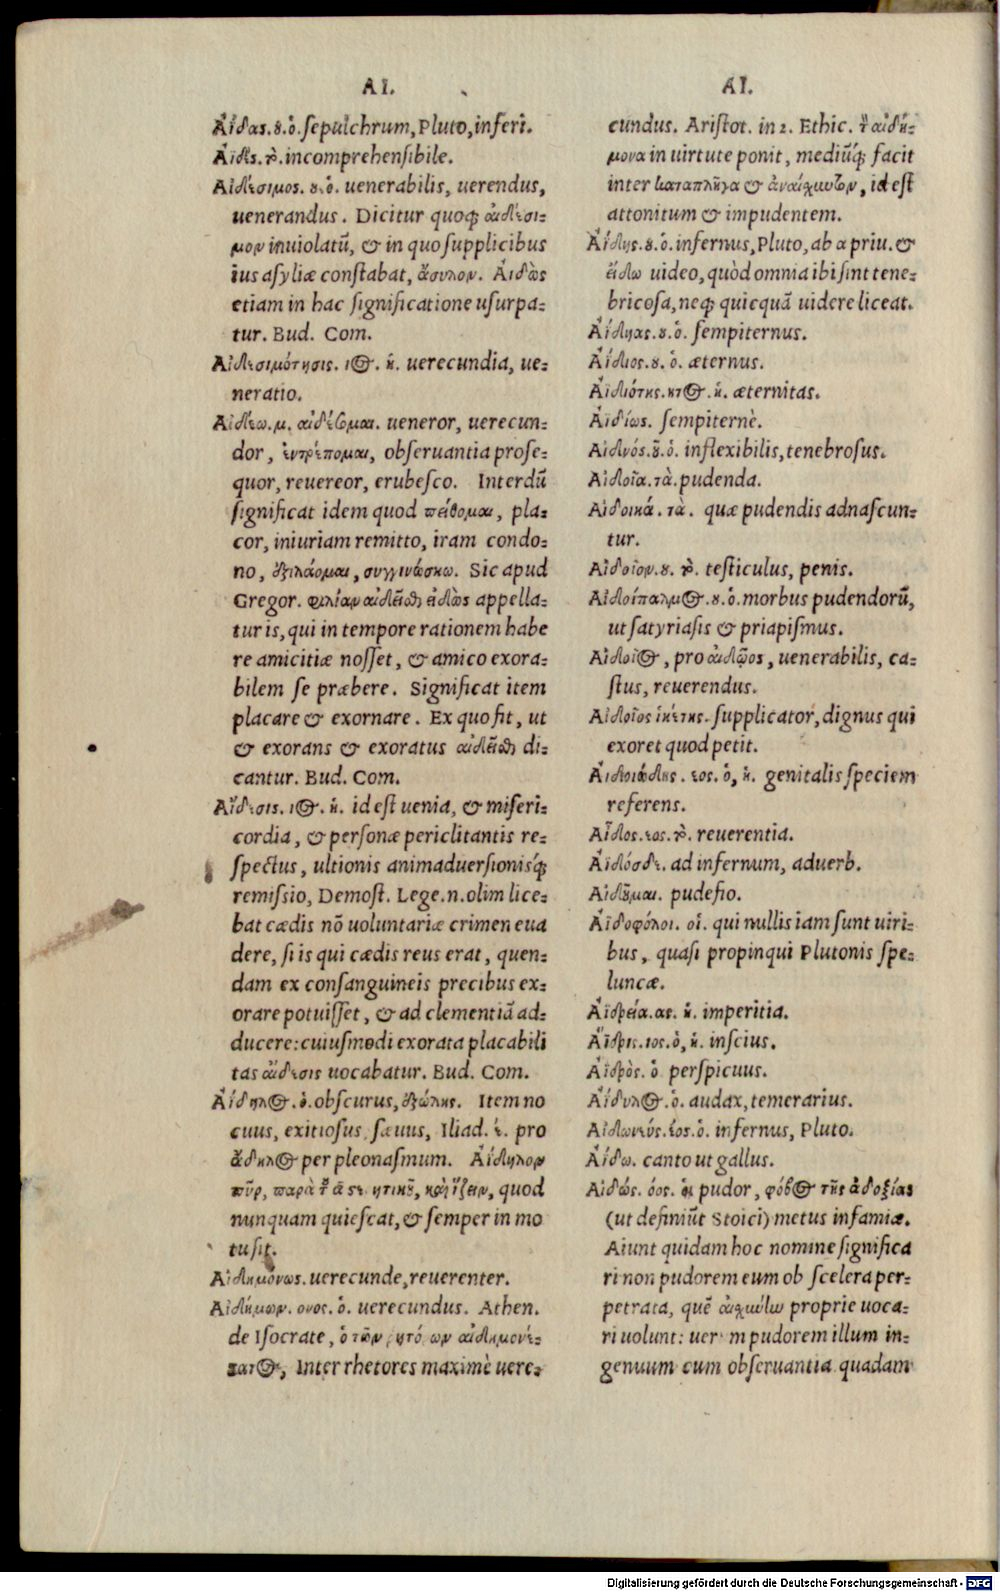 AI.
Ἀΐδας. ȣ. ὁ. ſepulchrum, Pluto, inferi.
Ἀϊδὲς. τὸ. incomprehenſibile.
Αἰδέσιμος. ȣ. ὁ. uenerabilis, uerendus,
uenerandus. Dicitur quoqꝫ αἰδέσι-
μον inuiolatũ, & in quo ſupplicibus
ius aſyliæ conſtabat, ἄσυλον. Αἰδὼς
etiam in hac ſignificatione uſurpa-
tur. Bud. Com.
Αἰδεσιμότησις. ιος. ἡ. uerecundia, ue-
neratio.
Αἰδέω. μ. αἰδέσομαι. ueneror, uerecun-
dor, ἐντρέπομαι, obſeruantia proſe-
quor, reuereor, erubeſco. Interdũ
ſignificat idem quod πείθομαι, pla-
cor, iniuriam remitto, iram condo-
no, ἐξιλάομαι, συγγινώσκω. Sic apud
Gregor. φιλίαν αἰδεῖσθαι εἰδὼς appella-
tur is, qui in tempore rationem habe
re amicitiæ noſſet, & amico exora-
bilem ſe præbere. Significat item
placare & exornare. Ex quo fit, ut
& exorans & exoratus αἰδεῖσθαι di-
cantur. Bud. Com.
Αἴδεσις. ιος. ἡ. id eſt uenia, & miſeri-
cordia, & perſonæ periclitantis re-
ſpectus, ultionis animaduerſionisqꝫ́
remiſsio, Demoſt. Lege.n.olim lice-
bat cædis nõ uoluntariæ crimen eua
dere, ſi is qui cædis reus erat, quen-
dam ex conſanguineis precibus ex-
orare potuiſſet, & ad clementiã ad-
ducere: cuiuſmodi exorata placabili
tas αἴδεσις uocabatur. Bud. Com.
Ἀΐδηλος. ὁ. obſcurus, ἐξώλης. Item no
cuus, exitioſus ſæuus, Iliad. ἐ. pro
ἄδηλος per pleonaſmum. Ἀΐδηλον
πῦρ, παρὰ τὸ ἀ στ ητικοῦ, καὶ ἵζειν, quod
nunquam quieſcat, & ſemper in mo
tu ſit.
Αἰδημόνως. uerecunde, reuerenter.
Αἰδήμων. ονος. ὁ. uerecundus. Athen.
de Iſocrate, ὁ τῶν ῥητό ων αἰδημονέ-
στατος, Inter rhetores maximè uere-
AI.
cundus. Ariſtot. in 2. Ethic. τὸν αἰδή-
μονα in uirtute ponit, mediũqꝫ́ facit
inter καταπλῆγα & ἀναίσχυντον, id eſt
attonitum & impudentem.
Ἀΐδης. ȣ. ὁ. infernus, Pluto, ab α priu. &
εἴδω uideo, quòd omnia ibi ſint tene-
bricoſa, neqꝫ quicquã uidere liceat.
Ἀΐδηας. ȣ. ὁ. ſempiternus.
Ἀΐδιος. ȣ. ὁ. æternus.
Ἀϊδιότης. ητος. ἡ. æternitas.
Ἀϊδίως. ſempiternè.
Αἰδνός. ȣ͂. ὁ. inflexibilis, tenebroſus.
Αἰδοῖα. τὰ. pudenda.
Αἰδοικά. τὰ. quæ pudendis adnaſcun-
tur.
Αἰδοῖον. ȣ. τὸ. teſticulus, penis.
Αἰδοίπαλμος. ȣ. ὁ. morbus pudendorũ,
ut ſatyriaſis & priapiſmus.
Αἰδοῖος, pro αἰδῷος, uenerabilis, ca-
ſtus, reuerendus.
Αἰδοῖος ἱκέτης. ſupplicator, dignus qui
exoret quod petit.
Αἰδοιώδης. εος. ὁ, ἡ. genitalis ſpeciem
referens.
Αἶδος. εος. τὸ. reuerentia.
Ἀϊδόσδε. ad infernum, aduerb.
Αἰδοῦμαι. pudefio.
Ἀϊδοφόλοι. οἱ. qui nullis iam ſunt uiri-
bus, quaſi propinqui Plutonis ſpe-
luncæ.
Ἀϊδρεία. ας. ἡ. imperitia.
Ἄϊδρις. ιος. ὁ, ἡ. inſcius.
Ἀϊδρὸς. ὁ. perſpicuus.
Ἀΐδυλος. ὁ. audax, temerarius.
Ἀϊδωνεύς. έος. ὁ. infernus, Pluto.
Ἀΐδω. canto ut gallus.
Αἰδώς. όος. ἡ pudor, φόβος τῆς ἀδοξίας
(ut definiũt Stoici) metus infamiæ.
Aiunt quidam hoc nomine ſignifica
ri non pudorem eum ob ſcelera per-
petrata, quẽ αἰσχύνην proprie uoca-
ri uolunt: uer m pudorem illum in-
genuum cum obſeruantia quadam
Digitalisierung gefördert durch die Deutsche Forschungsgemeinschaft - DFG